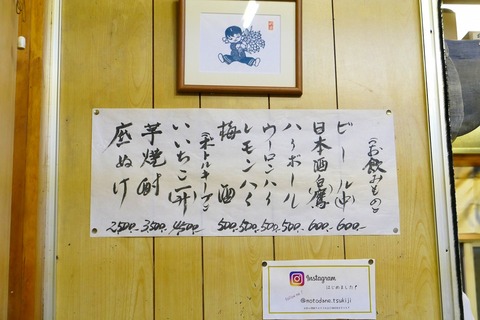 (お飲みもの)
ビール(中) 600-
日本酒(白鷹) 600-
ハイボール 500-
ウーロンハイ 500-
レモンハイ 500-
梅酒 500-
(ボトルキープ)
いいちこ(一升) 4500-
芋焼酎 3500-
庶ぬけ 2500-
Instagram
はじめました!
@motodane.tsukiji